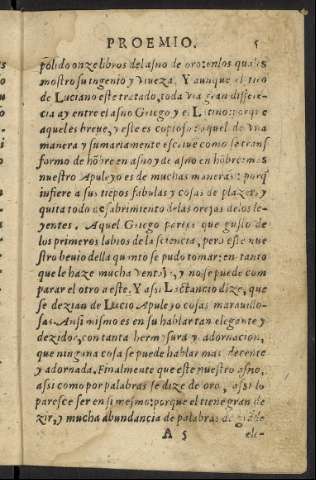 PROEMIO. 5
polido onze libros del asno de oro: en los quales
mostro su ingenio y viueza. Y aunque el
de Luciano este tratado, toda via gran differen-
cia ay entre el asno Griego y el Latino: porque
aquel es breue, y este es copioso: aquel de vna
manera y sumariamente escriue como se trans
formo de hōbre en asno y de asno en hōbre: mas
nuestro Apuleyo es de muchas maneras: porq̄
infiere a sus tiēpos fabulas y cosas de plazer, y
quita todo desabrimiento de las orejas de los le-
yentes. Aquel Griego paresce que gusto de
los primeros labios de la sciencia, pero este nue
stro beuio della quanto se pudo tomar: en tanto
que le haze mucha ventaja, y no se puede com
parar el otro a este. Y assi Lactancio dize, que
se dezian de Lucio Apuleyo cosas marauillo-
sas. Ansi mismo es en su hablar tan elegante y
dezidor, con tanta hermosura y adornacion,
que ninguna cosa se puede hablar mas decente
y adornada. Finalmente que este nuestro asno,
assi como por palabras se dize de oro, assi lo
paresce ser en si mesmo: porque el tiene gran de
zir, y mucha abundancia de palabras de grāde
A 5 ele-